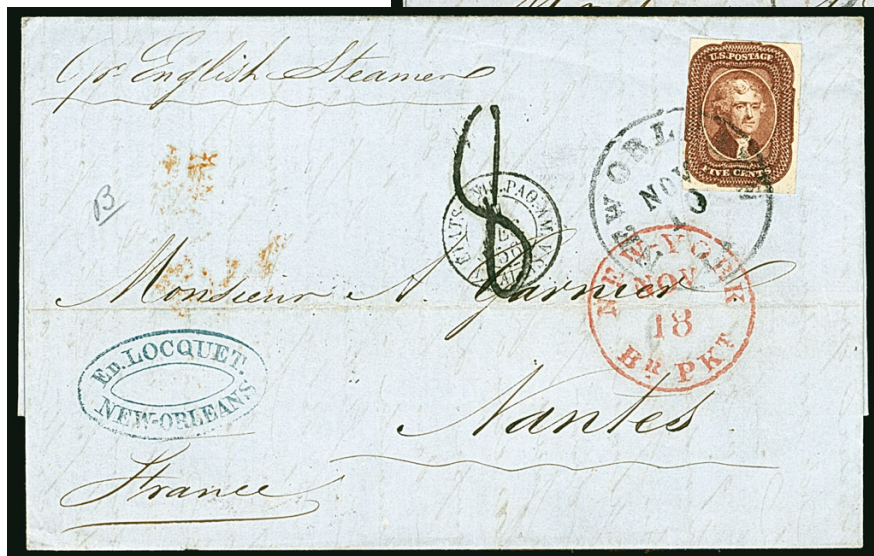 Pr. English Steamer
U.S. POSTAGE
FIVE CENTS
NEW ORLE
NOV
10
8
B
Monsieur A. Garnier
NEW-YORK
NOV
18
BR PKT
ED. LOCQUET.
NEW-ORLEANS
Nantes
France